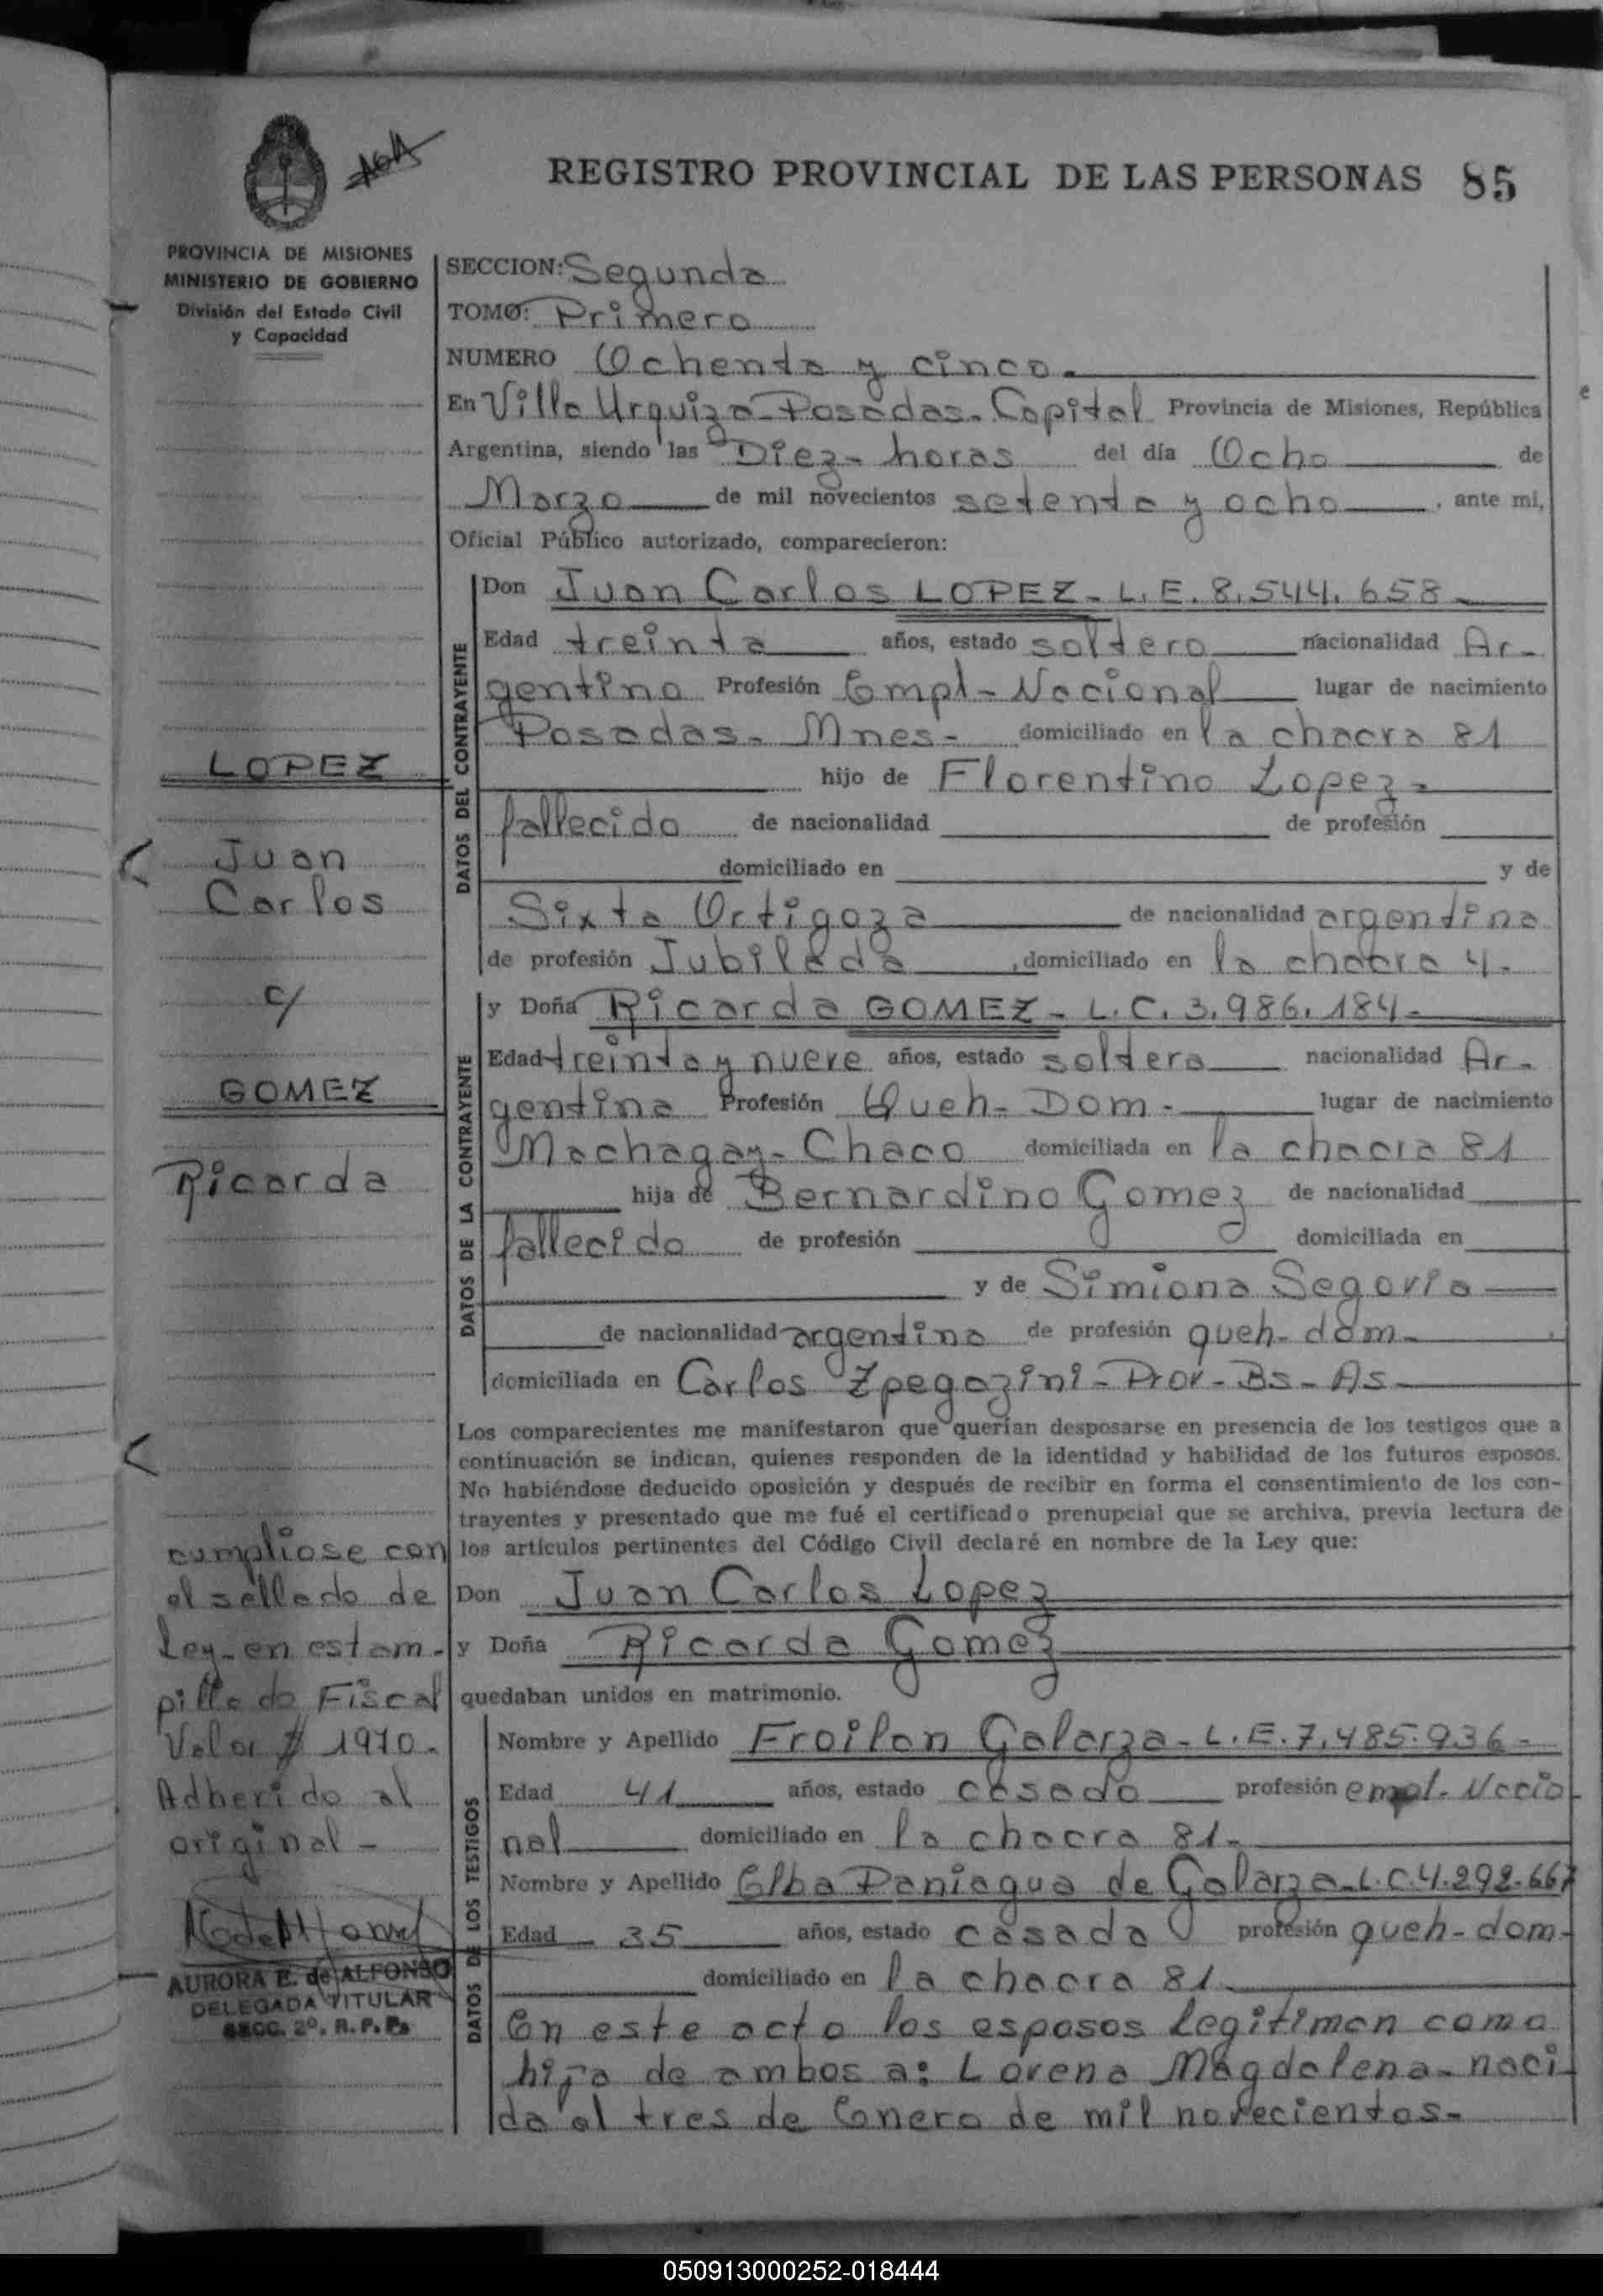 REGISTRO PROVINCIAL DE LAS PERSONAS 85
PROVINCIA DE MISIONES
MINISTERIO DE GOBIERNO
División del Estado Civil
y Capacidad
SECCION: Segunda
TOMO: Primero
NUMERO Ochenta y cinco.
En Villa Urquiza-Posadas-Capital Provincia de Misiones, República
Argentina, siendo las Diez- horas del día Ocho de
Marzo de mil novecientos setenta y ocho, ante mi,
Oficial Público autorizado, comparecieron:
DATOS DEL CONTRAYENTE
Don Juan Carlos LOPEZ- L.E. 8.544.658
Edad treinta años, estado soltero nacionalidad Ar-
gentina Profesión Empl-Nacional lugar de nacimiento
Posadas- Mnes- domiciliado en la chacra 81
hijo de Florentino Lopez-
fallecido de nacionalidad de profesión
domiciliado en y de
Sixta Ortigoza de nacionalidad argentina
de profesión Jubilada, domiciliado en la chacra 4.
LOPEZ
Juan
Carlos
c/
GOMEZ
Ricarda
DATOS DE LA CONTRAYENTE
y Doña Ricarda GOMEZ- L.C. 3.986.184-
Edad treinta y nueve años, estado soltera nacionalidad Ar-
gentina Profesión Queh- Dom- lugar de nacimiento
Machagay- Chaco domiciliada en la chacra 81
hija de Bernardino Gomez de nacionalidad
fallecido de profesión domiciliada en
y de Simiona Segovia
de nacionalidad argentina de profesión queh-dom-
domiciliada en Carlos Zpegazini-Prov-Bs-As
Los comparecientes me manifestaron que querían desposarse en presencia de los testigos que a
continuación se indican, quienes responden de la identidad y habilidad de los futuros esposos.
No habiéndose deducido oposición y después de recibir en forma el consentimiento de los con-
trayentes y presentado que me fué el certificado prenupcial que se archiva, previa lectura de
los artículos pertinentes del Código Civil declaré en nombre de la Ley que:
Don Juan Carlos Lopez
y Doña Ricarda Gomez
quedaban unidos en matrimonio.
cumpliose con
el sellado de
Ley-en estam-
pilla do Fiscal
Valor $ 1970.
Adherido al
original-
AURORA E. de ALFONSO
DELEGADA TITULAR
SECC. 2º. R. P. Ps
DATOS DE LOS TESTIGOS
Nombre y Apellido Froilan Galarza-L.E.7.485.936-
Edad 41 años, estado casado profesión empl. Nacio
nal domiciliado en la chacra 81-
Nombre y Apellido Elba Paniagua de Galarza-L.C.4.292.667
Edad 35 años, estado casada profesión queh-dom-
domiciliado en la chacra 81
En este acto los esposos legitiman como
hija de ambos a: Lorena Magdalena-naci
da el tres de Enero de mil novecientos-
050913000252-018444